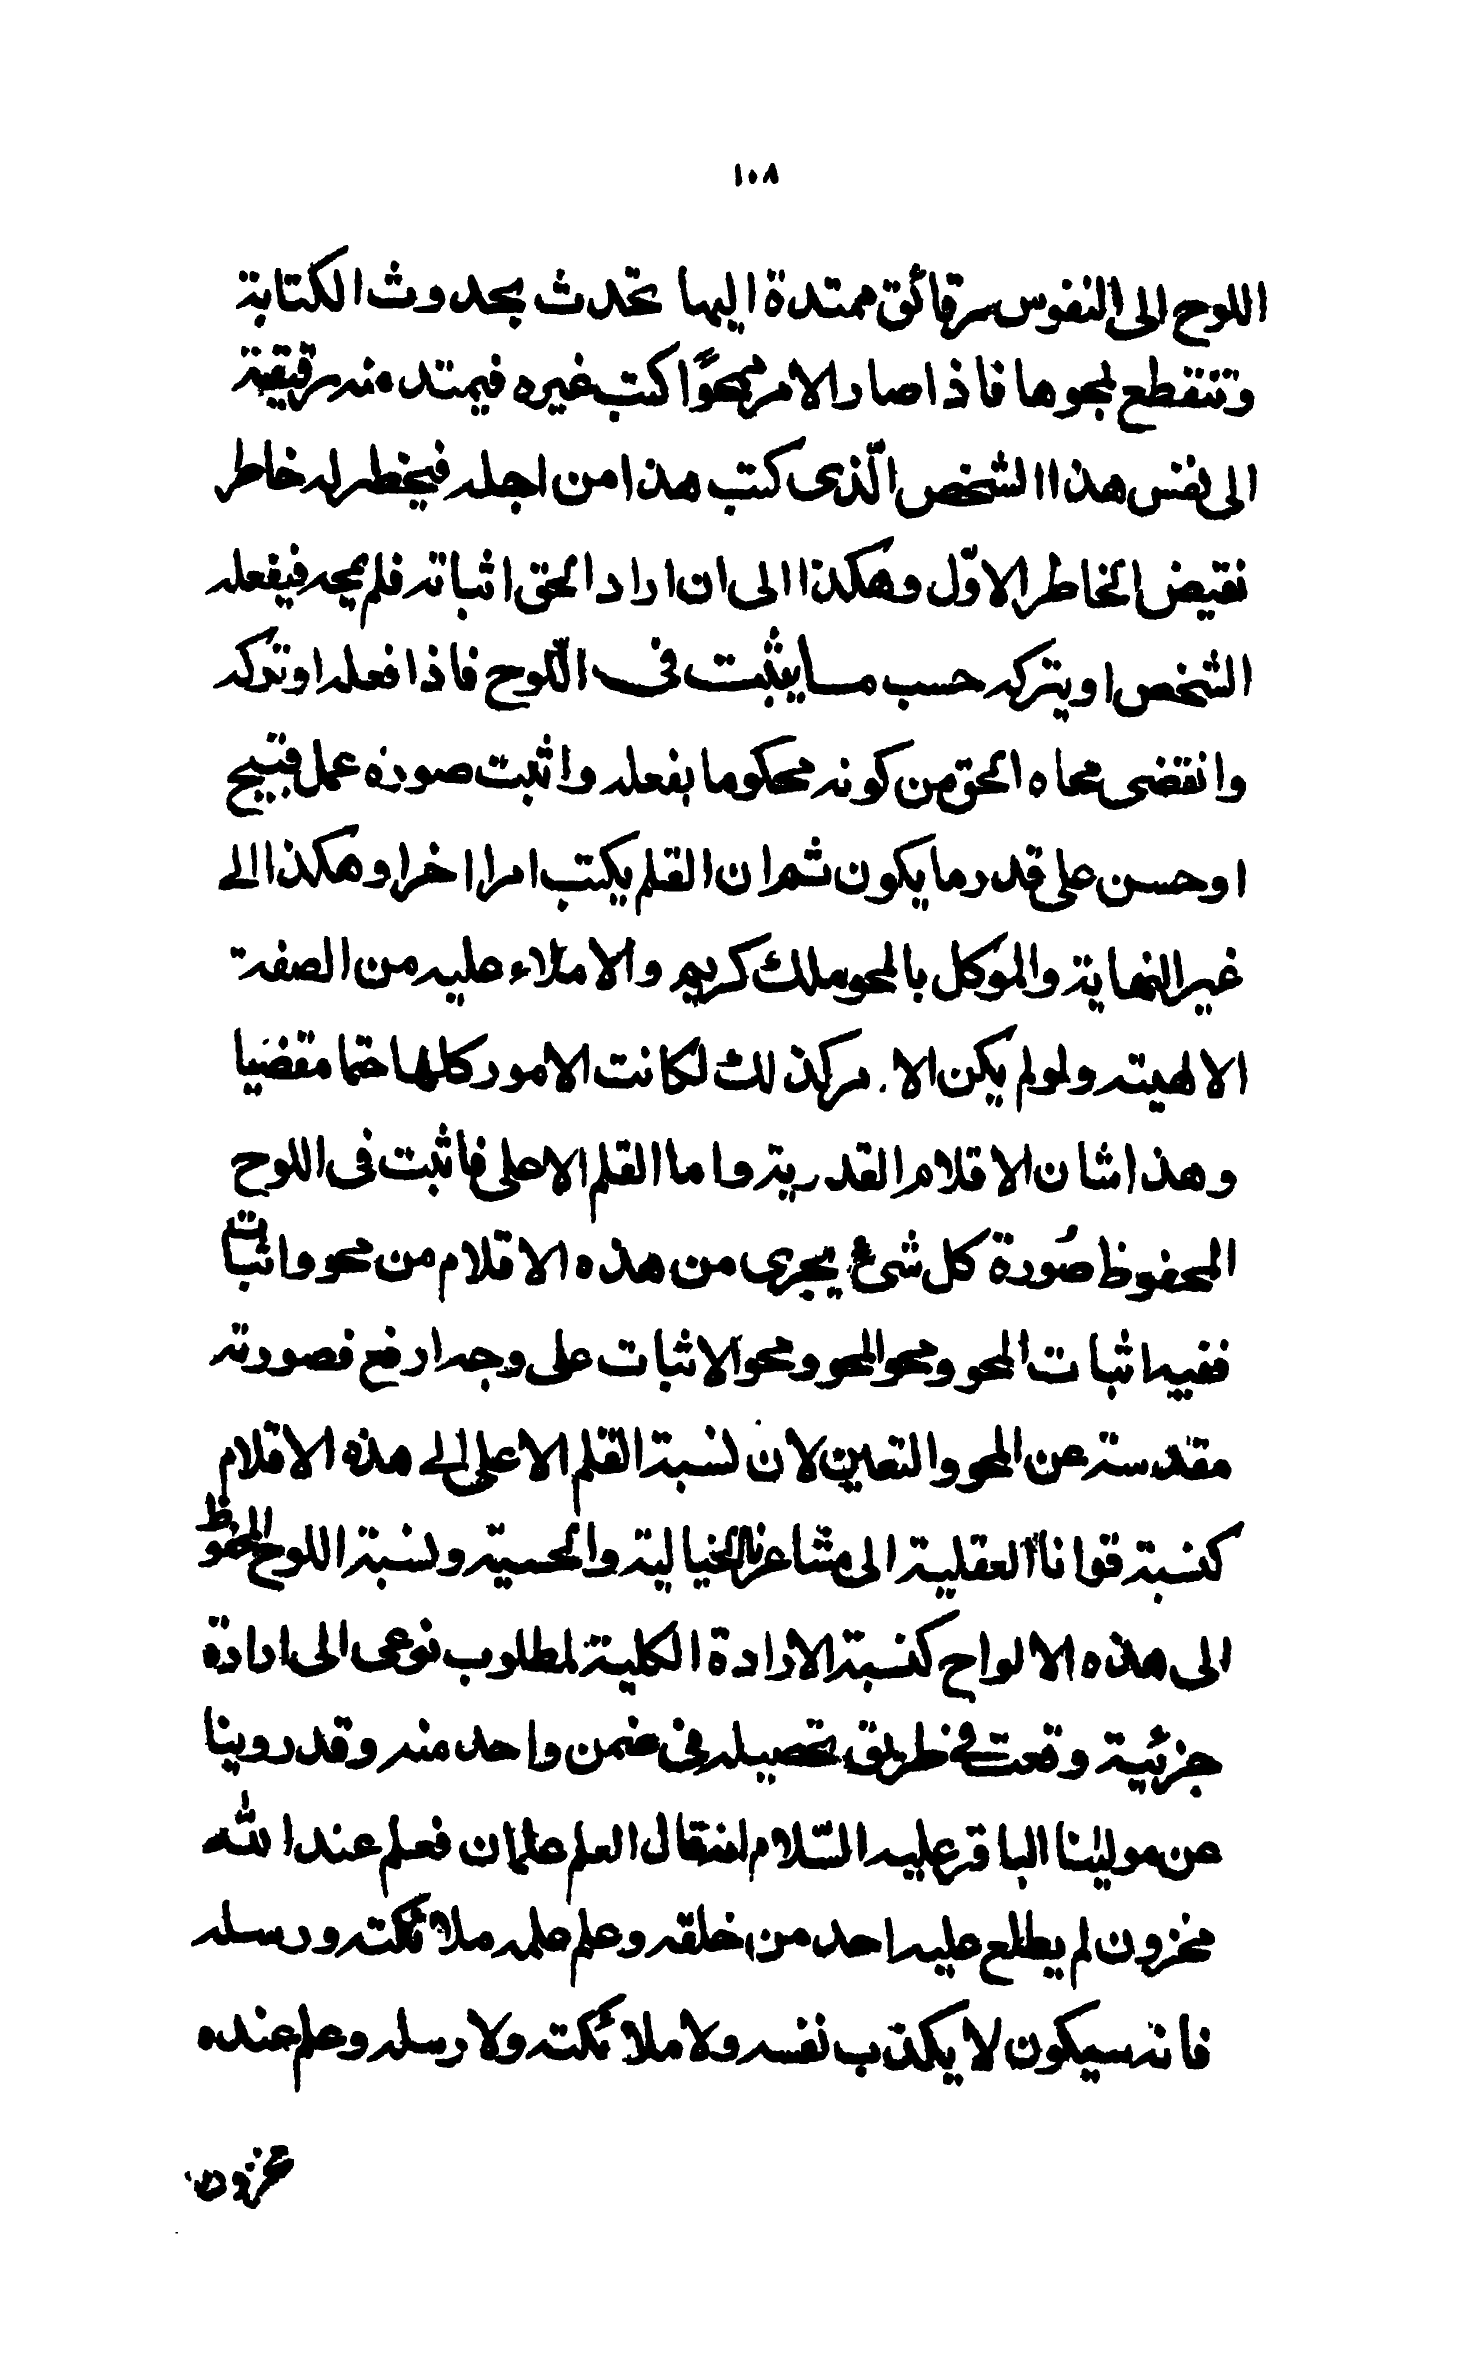 ١٠٨
اللوح الى النفوس رقائق ممتدة اليها تحدث بحدوث الكتابة
وتنقطع لمحوها فاذا صار الامر ممحوًا كتب غيره فيمتد منه رقيقة
الى نفس هذا الشخص الّذى كتب هذا من اجله فيخطر له خاطر
نقيض الخاطر الاوّل وهكذا الى ان اراد الحق اثباته فلم يمحه فيفعله
الشخص او يتركه حسب ما يثبت فى اللّوح فاذا فعله او تركه
وانقضى محاه الحق من كونه محكوما بفعله واثبت صورة عمل قبيح
او حسن على قدر ما يكون ثم ان القلم يكتب امرا اخرا وهكذا الى
غير النهاية والموكل بالمحو ملك كريم والاملاء عليه من الصفة
الالهيته ولو لم يكن الامر كذلك لكانت الامور كلها حتما مقضيا
وهذا شان الاقلام القدرية واما القلم الاعلى فاثبت فى اللوح
المحفوظ صُورة كل شئ يجرى من هذه الاقلام من محو واثبات
ففيه اثبات المحو ومحو المحو ومحو الاثبات على وجه ارفع فصورته
مقدسة عن المحو والتعين لان نسبة القلم الاعلى الى هذه الاقلام
كنسبة قوانا العقلية الى مشاعرنا الخيالية والحسية ونسبة اللوح المحفوظ
الى هذه الالواح كنسبة الارادة الكلية لمطلوب نوعى الى ارادة
جزئية وقعت فى طريق تحصيله فى ضمن واحد منه وقد روينا
عن مولينا الباقر عليه السّلام انه قال العلم علمان فعلم عند الله
مخزون لم يطلع عليه احد من خلقه وعلم علمه ملائكته ورسله
فانه سيكون لا يكذب نفسه ولا ملائكته ولا رسله وعلم عنده
مخزون